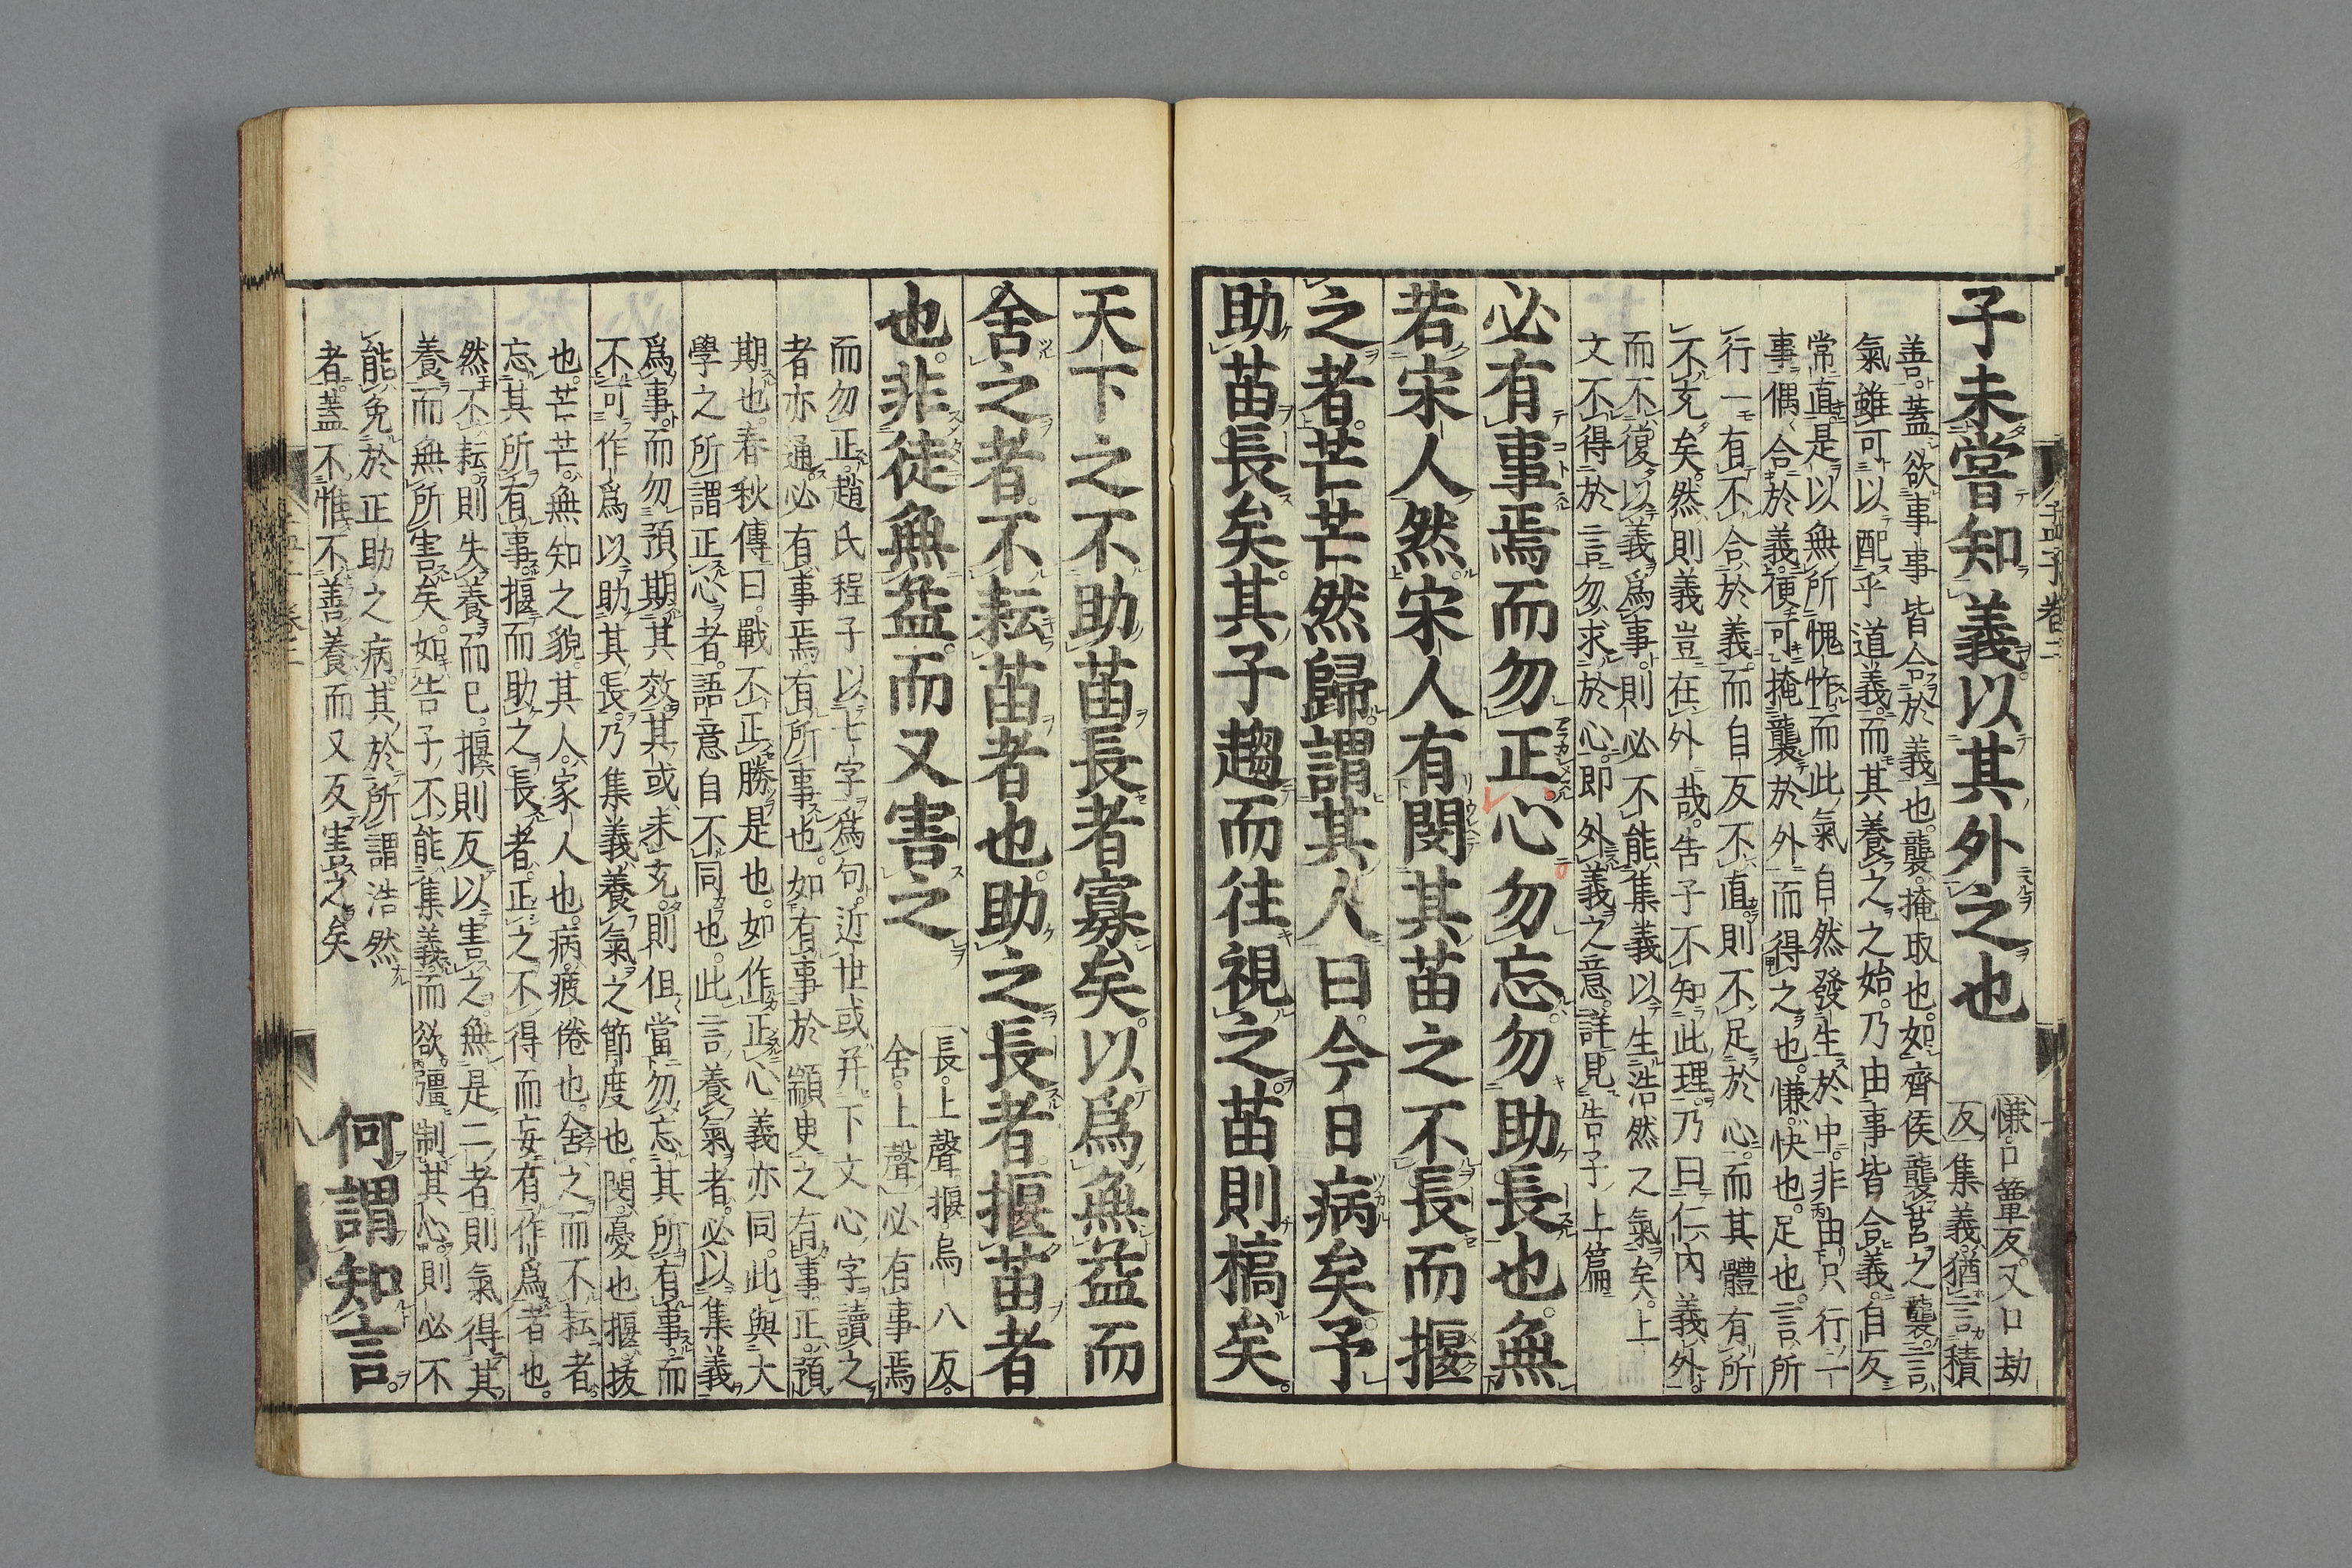 孟子 卷二
子未嘗知義以其外之也
慊口簟反又口劫
反集義猶言積
善。蓋欲事事皆合於義也。襲掩取也。如齊侯襲莒之襲。言
氣雖可以配乎道義。而其養之之始。乃由事皆合義。自反
常直。是以無所愧怍。而此氣自然發生於中。非由只行一
事偶合於義。便可掩襲於外而得之也。慊快也。足也。言所
行一有不合於義。而自反不直。則不足於心。而其體有所
不充矣。然則義豈在外哉。告子不知此理。乃曰仁内義外。
而不復以義爲事。則必不能集義以生浩然之氣矣。上
文不得於言勿求於心。即外義之意。詳見告子上篇
必有事焉而勿正心勿忘勿助長也。無
若宋人然。宋人有閔其苗之不長而揠
之者。芒芒然歸。謂其人曰。今日病矣。予
助苗長矣。其子趨而往視之。苗則槁矣。
天下之不助苗長者寡矣。以爲無益而
舍之者。不耘苗者也。助之長者。揠苗者
也。非徒無益。而又害之
長。上聲。揠烏八反。
舍。上聲。必有事焉
而勿正。趙氏程子以七字爲句。近世或并下文心字讀之
者亦通。必有事焉。有所事也。如有事於顓臾之有事。正。預
期也。春秋傳曰。戰不正勝是也。如作正心義亦同。此與大
學之所謂正心者。語意自不同也。此言養氣者。必以集義
爲事。而勿預期其效。其或未充。則但當勿忘其所有事。而
不可作爲以助其長。乃集義養氣之節度也。閔憂也。揠拔
也。芒芒無知之貌。其人家人也。病疲倦也。舍之而不耘者。
忘其所有事。揠而助之長者。正之不得而妄有作爲者也。
然不耘則失養而已。揠則反以害之。無是二者。則氣得其
養而無所害矣。如告子不能集義。而欲彊制其心。則必不
能免於正助之病。其於所謂浩然
者。蓋不惟不善養而又反害之矣
何謂知言。